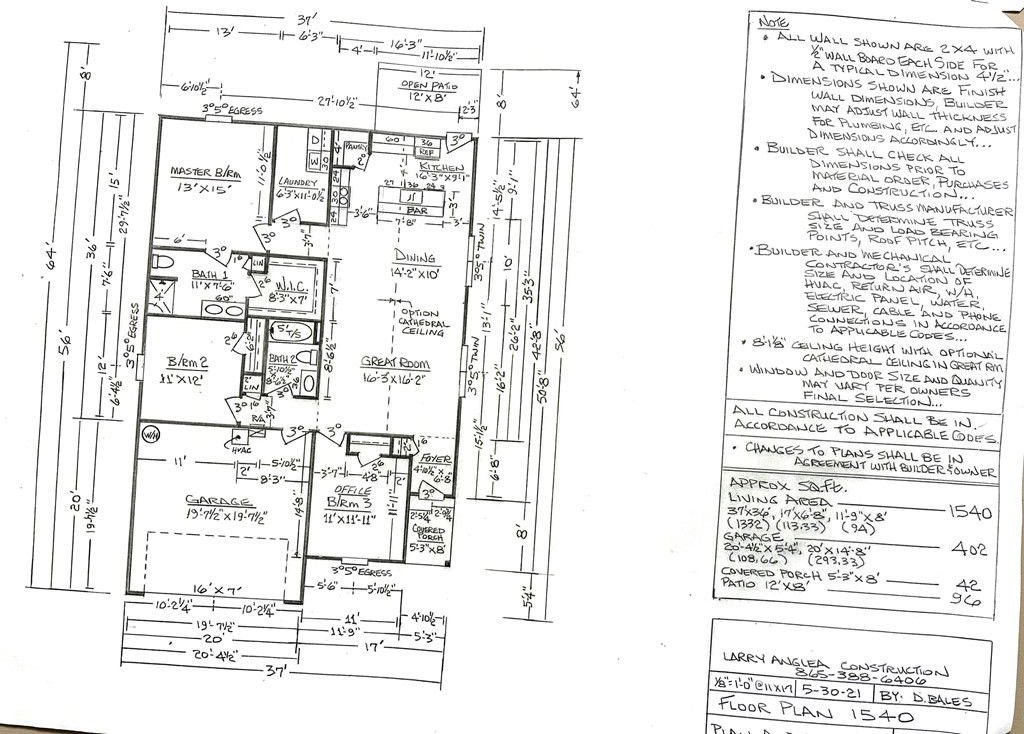 37'
13'
6'-3"
16'-3"
4'
11'-10½"
12'
OPEN PATIO
12' X 8'
8'
8'
64'
6'-10½"
27'-10½"
2'-3"
3°5° EGRESS
3°
D
W
30
PANTRY
2°
60
36
REF
KITCHEN
16'-3" X 9'-1"
MASTER B/RM
13' X 15'
11'-0½"
LAUNDRY
6'-3" X 11'-0½"
BAR
3'-6"
7'-8"
3'
3'-1"
14'-5½"
9'-1"
15'
29'-7½"
36'
64'
56'
3°
3°
3'-7"
6'
3°
DINING
14'-2" X 10'
3°5° TWIN
10'
35'-3"
BATH 1
11' X 7'-6"
LIN
W.I.C.
8'-3" X 7'
7'
7'-6"
4'
60"
OPTION
CATHEDRAL
CEILING
13'-1"
26'-2"
42'-8"
56'
50'-8"
3°5° EGRESS
5' T/S
B/RM 2
11' X 12'
BATH 2
5'-10½"
8'-6½"
8'-6½"
GREAT ROOM
16'-3 X 16'-2"
3°5° TWIN
16'-2"
12'
6'-4½"
2'
LIN
3°
3'-7"
R/A
W/H
HVAC
3°
3°
15'-1½"
11'
2'
5'-10½"
8'-3"
3'-7"
4'-8"
2'
FOYER
4'-10½" X
6'-8"
6'-8"
20'
19'-7½"
GARAGE
19'-7½" X 19'-7½"
14'-8"
OFFICE
B/RM 3
11' X 11'-11"
11'-11"
3°
2'-5¼"
COVERED
PORCH
5'-3" X 8'
8'
3°5° EGRESS
16' X 7'
5'-6"
5'-10½"
5'-4"
10'-2¼"
10'-2¼"
11'
4'-10½"
19'-7½"
11'-9"
5'-3"
20'
17'
20'-4½"
37'
NOTE
• ALL WALL SHOWN ARE 2X4 WITH
½" WALL BOARD EACH SIDE FOR
A TYPICAL DIMENSION 4½"...
• DIMENSIONS SHOWN ARE FINISH
WALL DIMENSIONS, BUILDER
MAY ADJUST WALL THICKNESS
FOR PLUMBING, ETC. AND ADJUST
DIMENSIONS ACCORDINGLY...
• BUILDER SHALL CHECK ALL
DIMENSIONS PRIOR TO
MATERIAL ORDER, PURCHASES
AND CONSTRUCTION...
• BUILDER AND TRUSS MANUFACTURER
SHALL DETERMINE TRUSS
SIZE AND LOAD BEARING
POINTS, ROOF PITCH, ETC...
• BUILDER AND MECHANICAL
CONTRACTOR'S SHALL DETERMINE
SIZE AND LOCATION OF
HVAC, RETURN AIR, W/H
ELECTRIC PANEL, WATER,
SEWER, CABLE AND PHONE
CONNECTIONS IN ACCORDANCE
TO APPLICABLE CODES...
• 8'-1⅛" CEILING HEIGHT WITH OPTIONAL
CATHEDRAL CEILING IN GREAT RM
• WINDOW AND DOOR SIZE AND QUANITY
MAY VARY PER OWNERS
FINAL SELECTION...
ALL CONSTRUCTION SHALL BE IN
ACCORDANCE TO APPLICABLE CODES.
• CHANGES TO PLANS SHALL BE IN
AGREEMENT WITH BUILDER & OWNER
APPROX SQ. FT.
LIVING AREA 1540
37' X 36', 17' X 6'-8", 11'-9" X 8'
(1332) (113.33) (94)
GARAGE 402
20'-4½" X 5'-4", 20' X 14'-8"
(108.66) (293.33)
COVERED PORCH 5'-3" X 8' 42
PATIO 12' X 8' 96
LARRY ANGLEA CONSTRUCTION
865-388-6406
⅛"=1'-0" @ 11X17 5-30-21 BY: D. BALES
FLOOR PLAN 1540